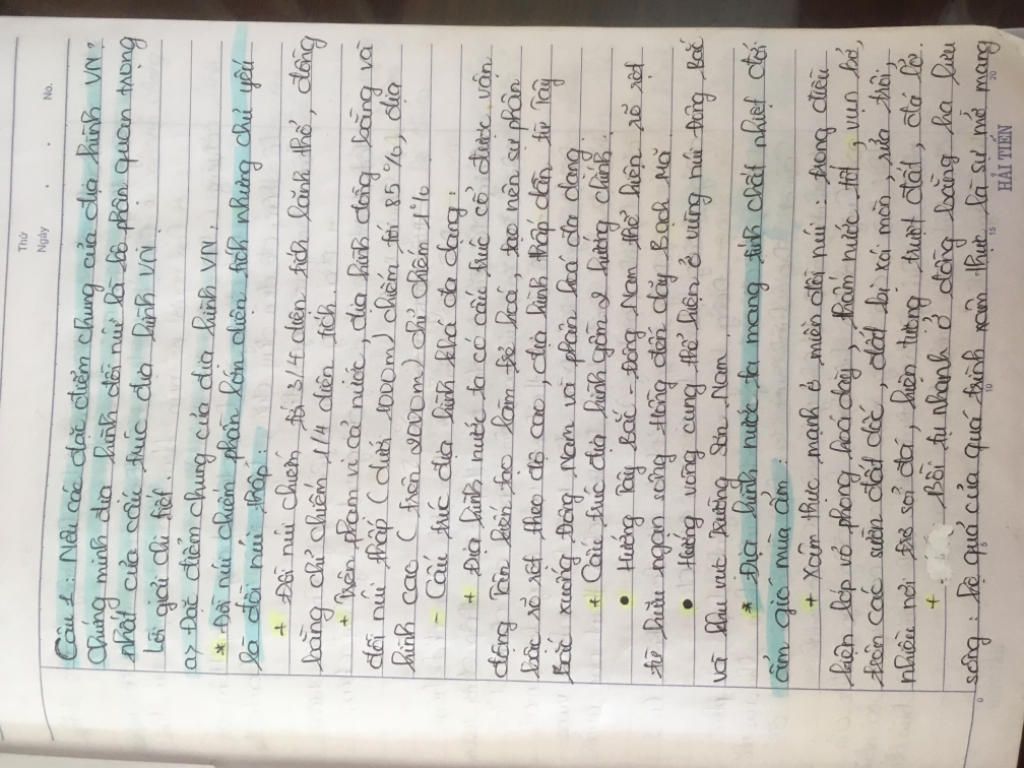 Thứ
Ngày
No.
Câu 1: Nêu các đặc điểm chung của địa hình VN?
Chứng minh địa hình đồi núi là bộ phận quan trọng
nhất của cấu trúc địa hình VN
Lời giải chi tiết.
a> Đặc điểm chung của địa hình VN.
* Đồi núi chiếm phần lớn diện tích nhưng chủ yếu
là đồi núi thấp:
+ Đồi núi chiếm tới 3/4 diện tích lãnh thổ, đồng
bằng chỉ chiếm 1/4 diện tích
+ Trên phạm vi cả nước, địa hình đồng bằng và
đồi núi thấp (dưới 1000m) chiếm tới 85%, địa
hình cao (trên 2000m) chỉ chiếm 1%
- Cấu trúc địa hình khá đa dạng:
+ Địa hình nước ta có cấu trúc cổ được vận
động Tân kiến tạo làm trẻ hoá, tạo nên sự phân
bậc rõ rệt theo độ cao, địa hình thấp dần từ Tây
Bắc xuống Đông Nam và phân hoá đa dạng
+ Cấu trúc địa hình gồm 2 hướng chính
• Hướng Tây Bắc - Đông Nam thể hiện rõ rệt
từ hữu ngạn sông Hồng đến dãy Bạch Mã
• Hướng vòng cung thể hiện ở vùng núi Đông Bắc
và khu vực Trường Sơn Nam
* Địa hình nước ta mang tính chất nhiệt đới
ẩm gió mùa ẩm.
+ Xâm thực mạnh ở miền đồi núi: trong điều
kiện lớp vỏ phong hoá dày, thấm nước tốt, vụn bở,
trên các sườn đất dốc, đất bị xói mòn, rửa trôi,
nhiều nơi trơ sỏi đá, hiện tượng trượt đất, đá lở..
+ Bồi tụ nhanh ở đồng bằng hạ lưu
sông: hệ quả của quá trình xâm thực là sự mở mang
0 5 10 15 20
HẢI TIẾN